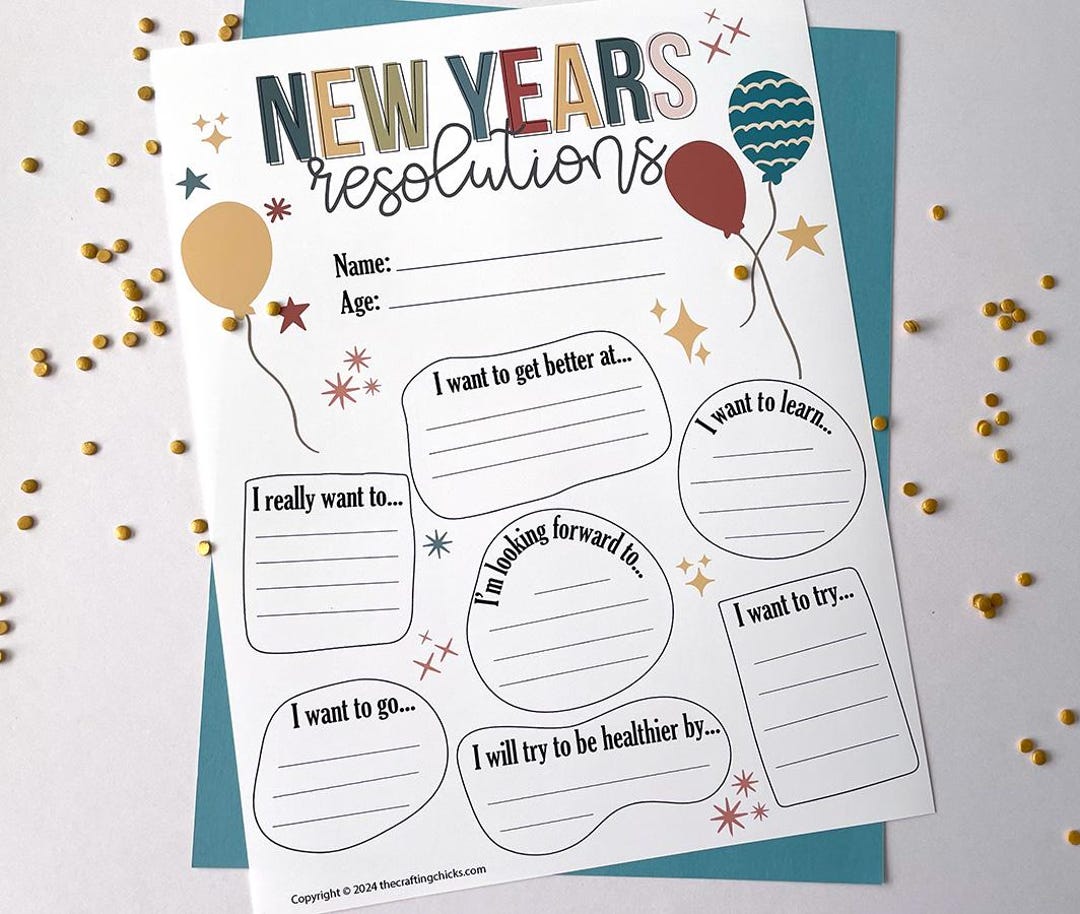 NEW YEARS
resolutions
Name:
Age:
I want to get better at...
I want to learn...
I really want to...
I'm looking forward to...
I want to try...
I want to go...
I will try to be healthier by...
Copyright © 2024 thecraftingchicks.com